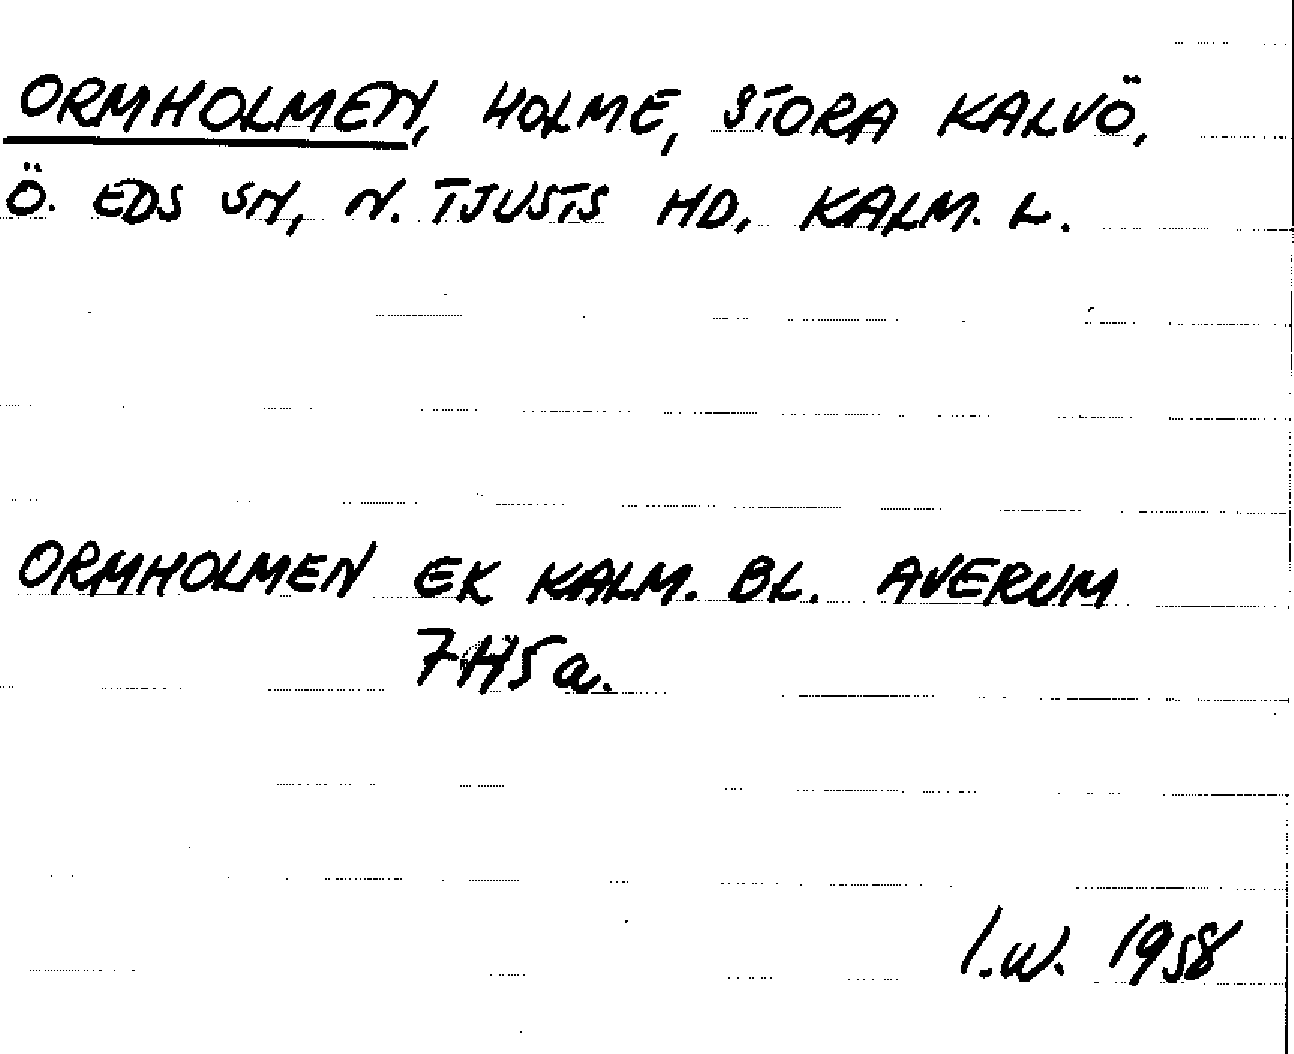 ORMHOLMEN, HOLME, STORA KALVÖ,
Ö. EDS SN, N. TJUSTS HD, KALM. L.
ORMHOLMEN EK KALM. BL. AVERUM
7H5a.
I.W. 1958